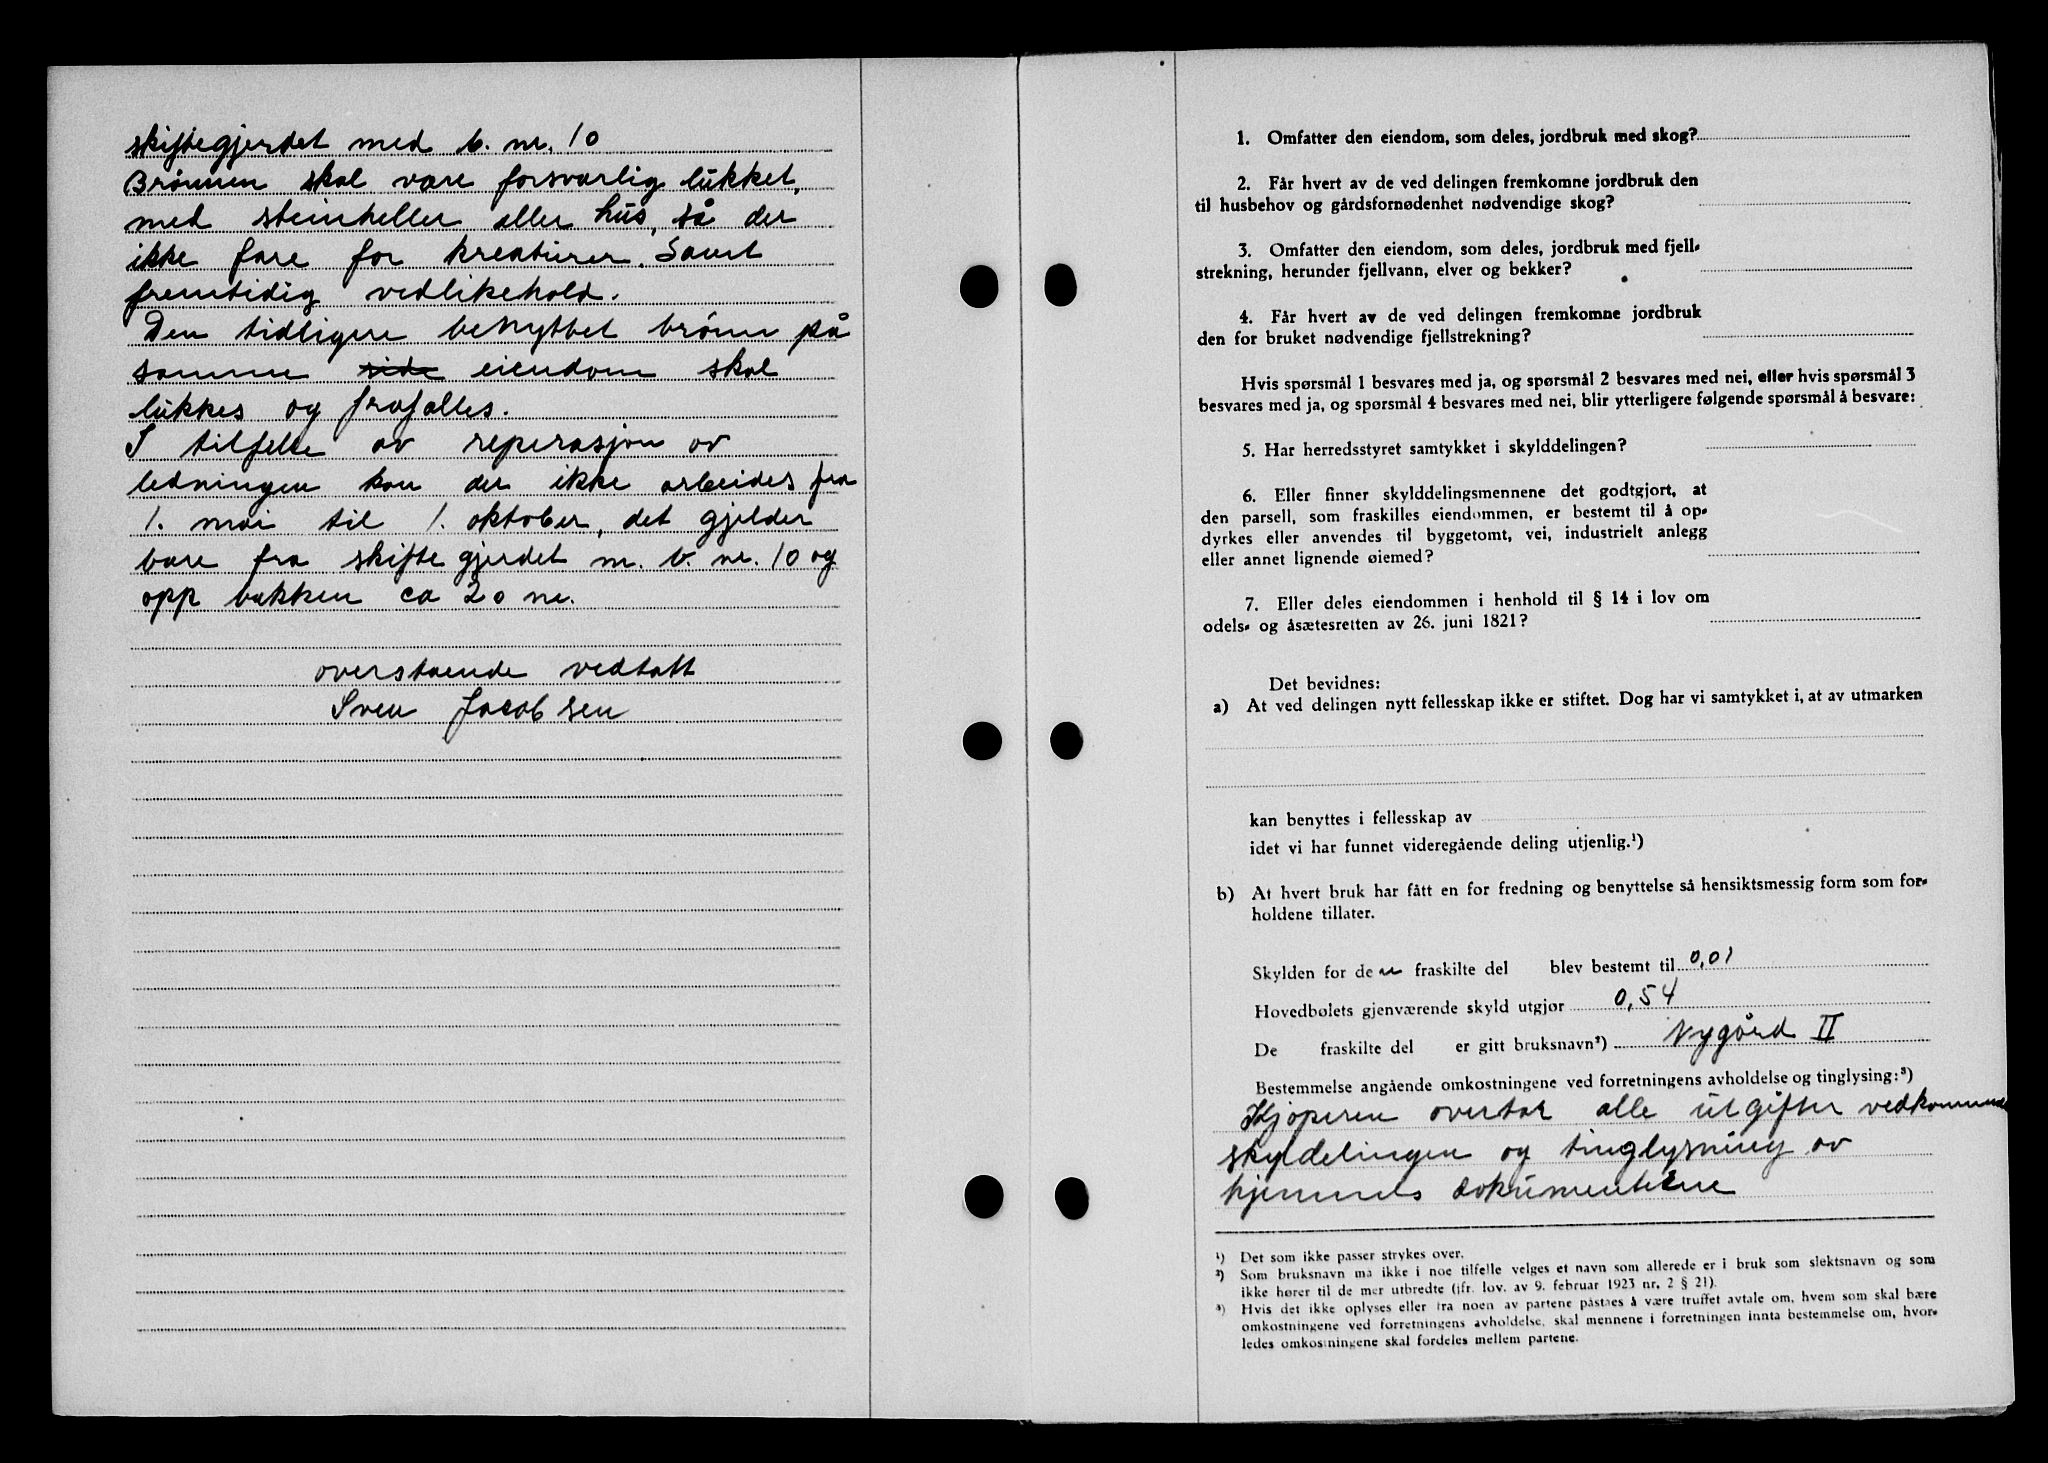 skiftegjerdet med b. nr. 10
Brønnen skal være forsvarlig lukket,
med steinheller eller hus, så der
ikke fare for kreaturer. Samt
fremtidig vedlikehold.
Den tidligere benyttet brønn på
samme side eiendom skal
lukkes og frafalles.
I tilfelle av reperasjon av
ledningen kan der ikke arbeides fra
1. mai til 1. oktober, det gjelder
bare fra skiftegjerdet m. b. nr. 10 og
opp bakken ca 20 m.
overstående vedtatt
Sven Jacobsen
1. Omfatter den eiendom, som deles, jordbruk med skog?
2. Får hvert av de ved delingen fremkomne jordbruk den
til husbehov og gårdsfornødenhet nødvendige skog?
3. Omfatter den eiendom, som deles, jordbruk med fjell-
strekning, herunder fjellvann, elver og bekker?
4. Får hvert av de ved delingen fremkomne jordbruk
den for bruket nødvendige fjellstrekning?
Hvis spørsmål 1 besvares med ja, og spørsmål 2 besvares med nei, eller hvis spørsmål 3
besvares med ja, og spørsmål 4 besvares med nei, blir ytterligere følgende spørsmål å besvare:
5. Har herredsstyret samtykket i skylddelingen?
6. Eller finner skylddelingsmennene det godtgjort, at
den parsell, som fraskilles eiendommen, er bestemt til å op-
dyrkes eller anvendes til byggetomt, vei, industrielt anlegg
eller annet lignende øiemed?
7. Eller deles eiendommen i henhold til § 14 i lov om
odels- og åsætesretten av 26. juni 1821?
Det bevidnes:
a) At ved delingen nytt fellesskap ikke er stiftet. Dog har vi samtykket i, at av utmarken
kan benyttes i fellesskap av
idet vi har funnet videregående deling utjenlig.¹)
b) At hvert bruk har fått en for fredning og benyttelse så hensiktsmessig form som for-
holdene tillater.
Skylden for den fraskilte del blev bestemt til 0,01
Hovedbølets gjenværende skyld utgjør 0,54
De fraskilte del er gitt bruksnavn²) Nygård II
Bestemmelse angående omkostningene ved forretningens avholdelse og tinglysing:³)
Kjøperen overtar alle utgifter vedkommende
skyldelingen og tinglysning av
hjemmels dokumentene
¹) Det som ikke passer strykes over.
²) Som bruksnavn må ikke i noe tilfelle velges et navn som allerede er i bruk som slektsnavn og som
ikke hører til de mer utbredte (jfr. lov. av 9. februar 1923 nr. 2 § 21).
³) Hvis det ikke oplyses eller fra noen av partene påstaes å være truffet avtale om, hvem som skal bære
omkostningene ved forretningens avholdelse, skal mennene i forretningen innta bestemmelse om, hvor-
ledes omkostningene skal fordeles mellem partene.